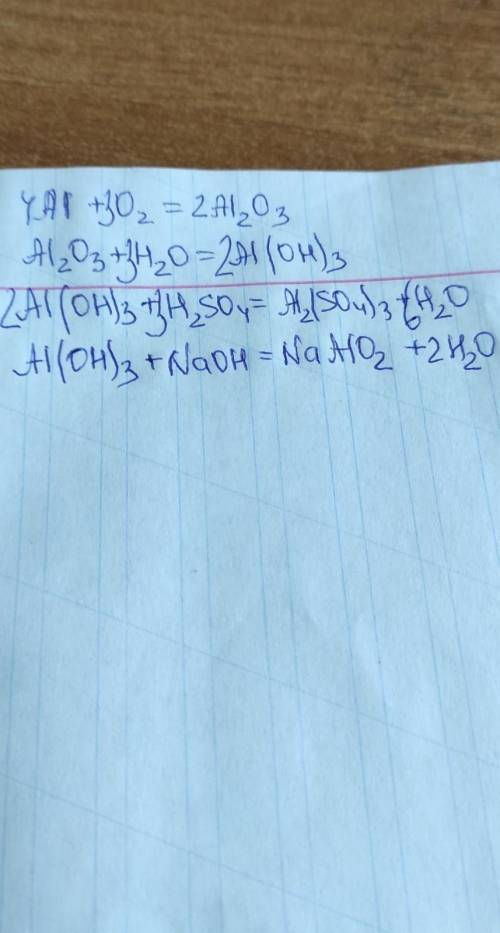 4Al + 3O₂ = 2Al₂O₃
Al₂O₃ + 3H₂O = 2Al(OH)₃
2Al(OH)₃ + 3H₂SO₄ = Al₂(SO₄)₃ + 6H₂O
Al(OH)₃ + NaOH = NaAlO₂ + 2H₂O